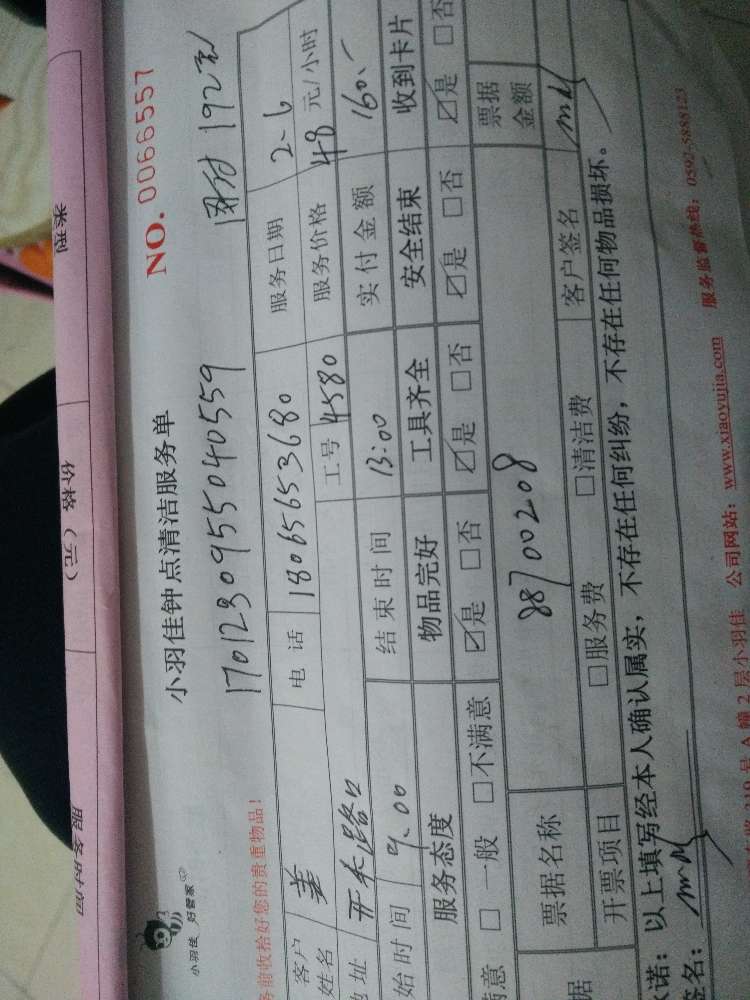 类型
价格（元）
服务时间
小羽佳 好管家
小羽佳钟点清洁服务单
NO. 0066557
务前收拾好您的贵重物品！
1701230955040559
192元
客户姓名
姜
电话
18065653680
服务日期
2-6
地址
开禾路口
工号
4580
服务价格
48元/小时
始时间
9:00
结束时间
13:00
实付金额
160.-
服务态度
物品完好
工具齐全
安全结束
收到卡片
满意 □一般 □不满意
☑是 □否
☑是 □否
☑是 □否
☑是 □否
据
票据名称
88700208
票据金额
开票项目
□服务费
□清洁费
客户签名
诺：以上填写经本人确认属实，不存在任何纠纷，不存在任何物品损坏。
签名：
19号A幢2层小羽佳
公司网站：www.xiaoyujia.com
服务监督热线：0592-5888123